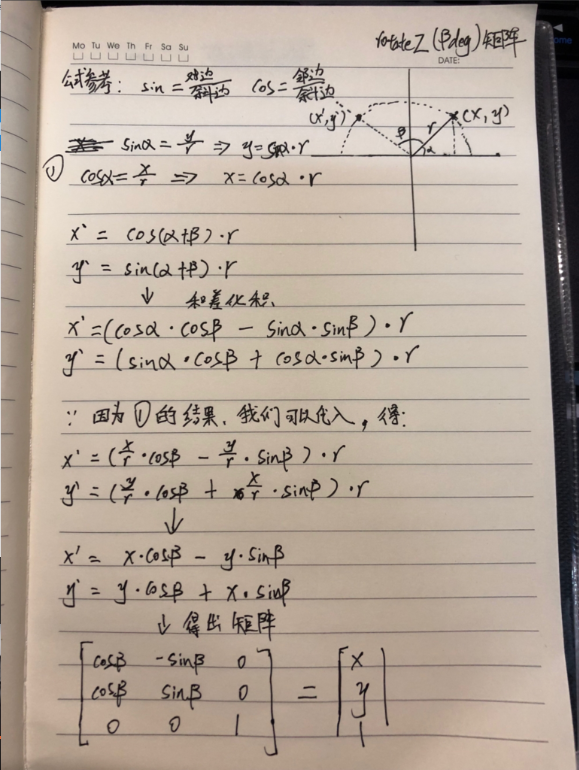 rotateZ (βdeg) 矩阵
Mo Tu We Th Fr Sa Su
DATE:
公式参考: sin = 对边/斜边 cos = 邻边/斜边
(x', y') β r α (x, y)
sinα = y/r ⇒ y = sinα · r
① cosα = x/r ⇒ x = cosα · r
x' = cos(α+β) · r
y' = sin(α+β) · r
↓ 和差化积
x' = (cosα · cosβ - sinα · sinβ) · r
y' = (sinα · cosβ + cosα · sinβ) · r
∵ 因为①的结果, 我们可以代入, 得:
x' = (x/r · cosβ - y/r · sinβ) · r
y' = (y/r · cosβ + x/r · sinβ) · r
↓
x' = x · cosβ - y · sinβ
y' = y · cosβ + x · sinβ
↓ 得出矩阵
cosβ -sinβ 0 x
cosβ sinβ 0 = y
0 0 1 1